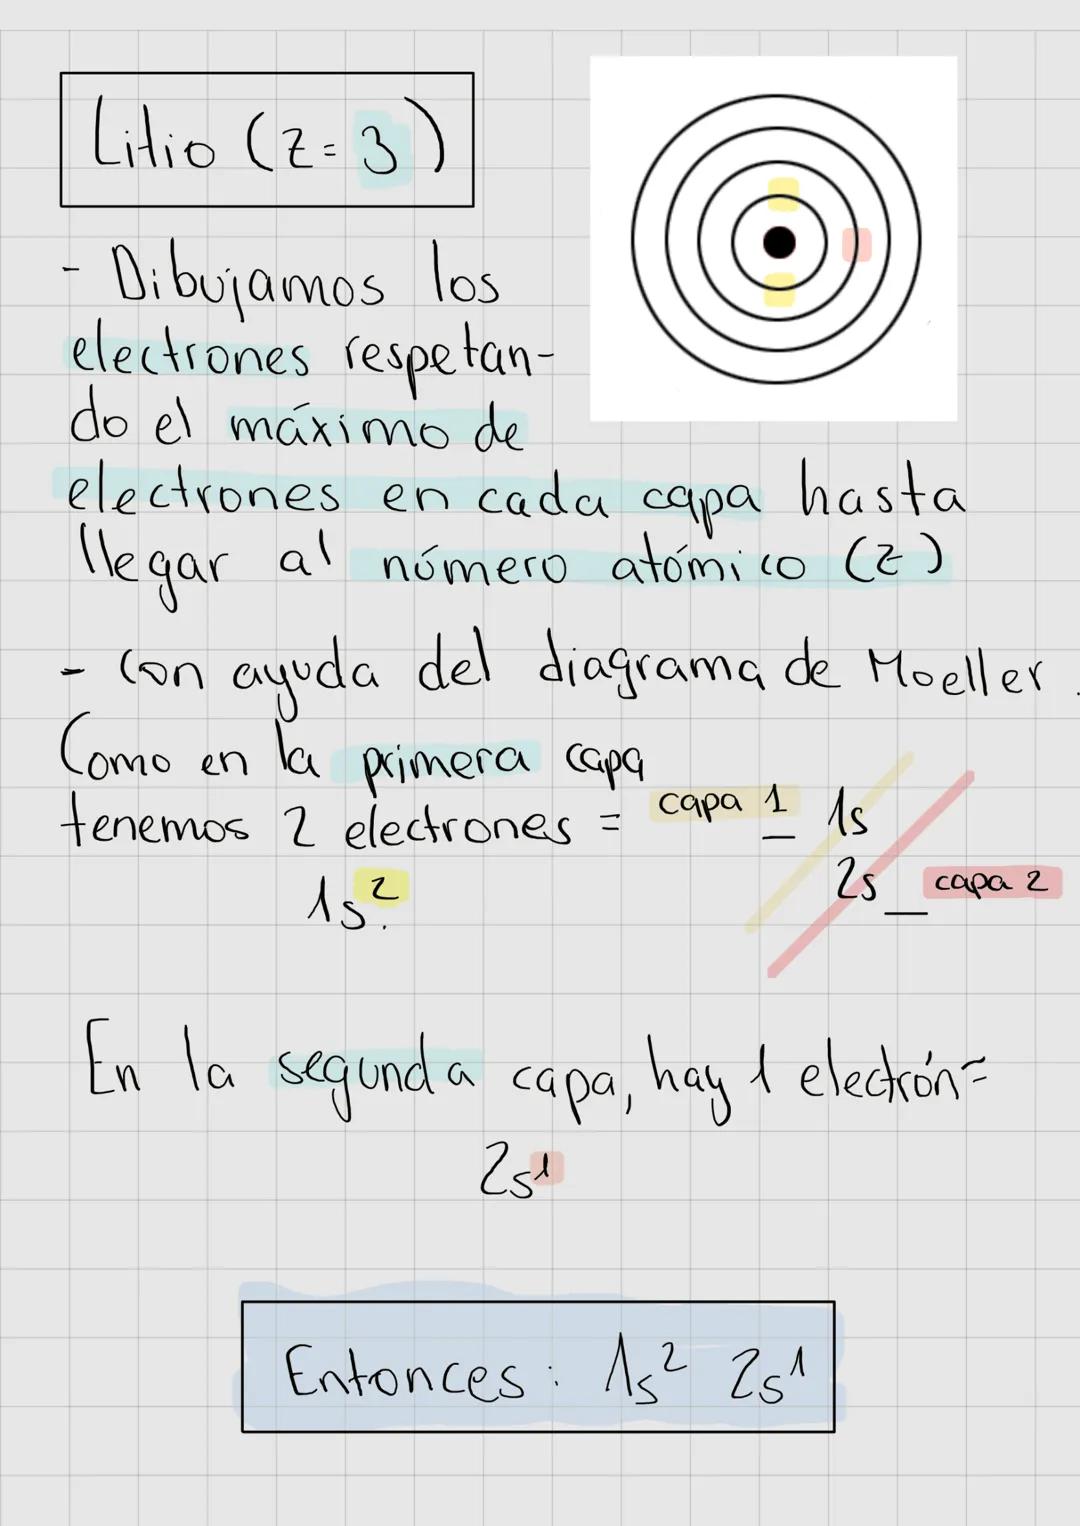 Litio (Z= 3)
- Dibujamos los
electrones respetan-
do el máximo de
electrones en cada capa hasta
llegar al número atómico (Z)
- Con ayuda del diagrama de Moeller.
Como en la primera capa
tenemos 2 electrones = capa 1 1s
1s². 2s capa 2
En la segunda capa, hay 1 electrón=
2s¹
Entonces: 1s² 2s¹